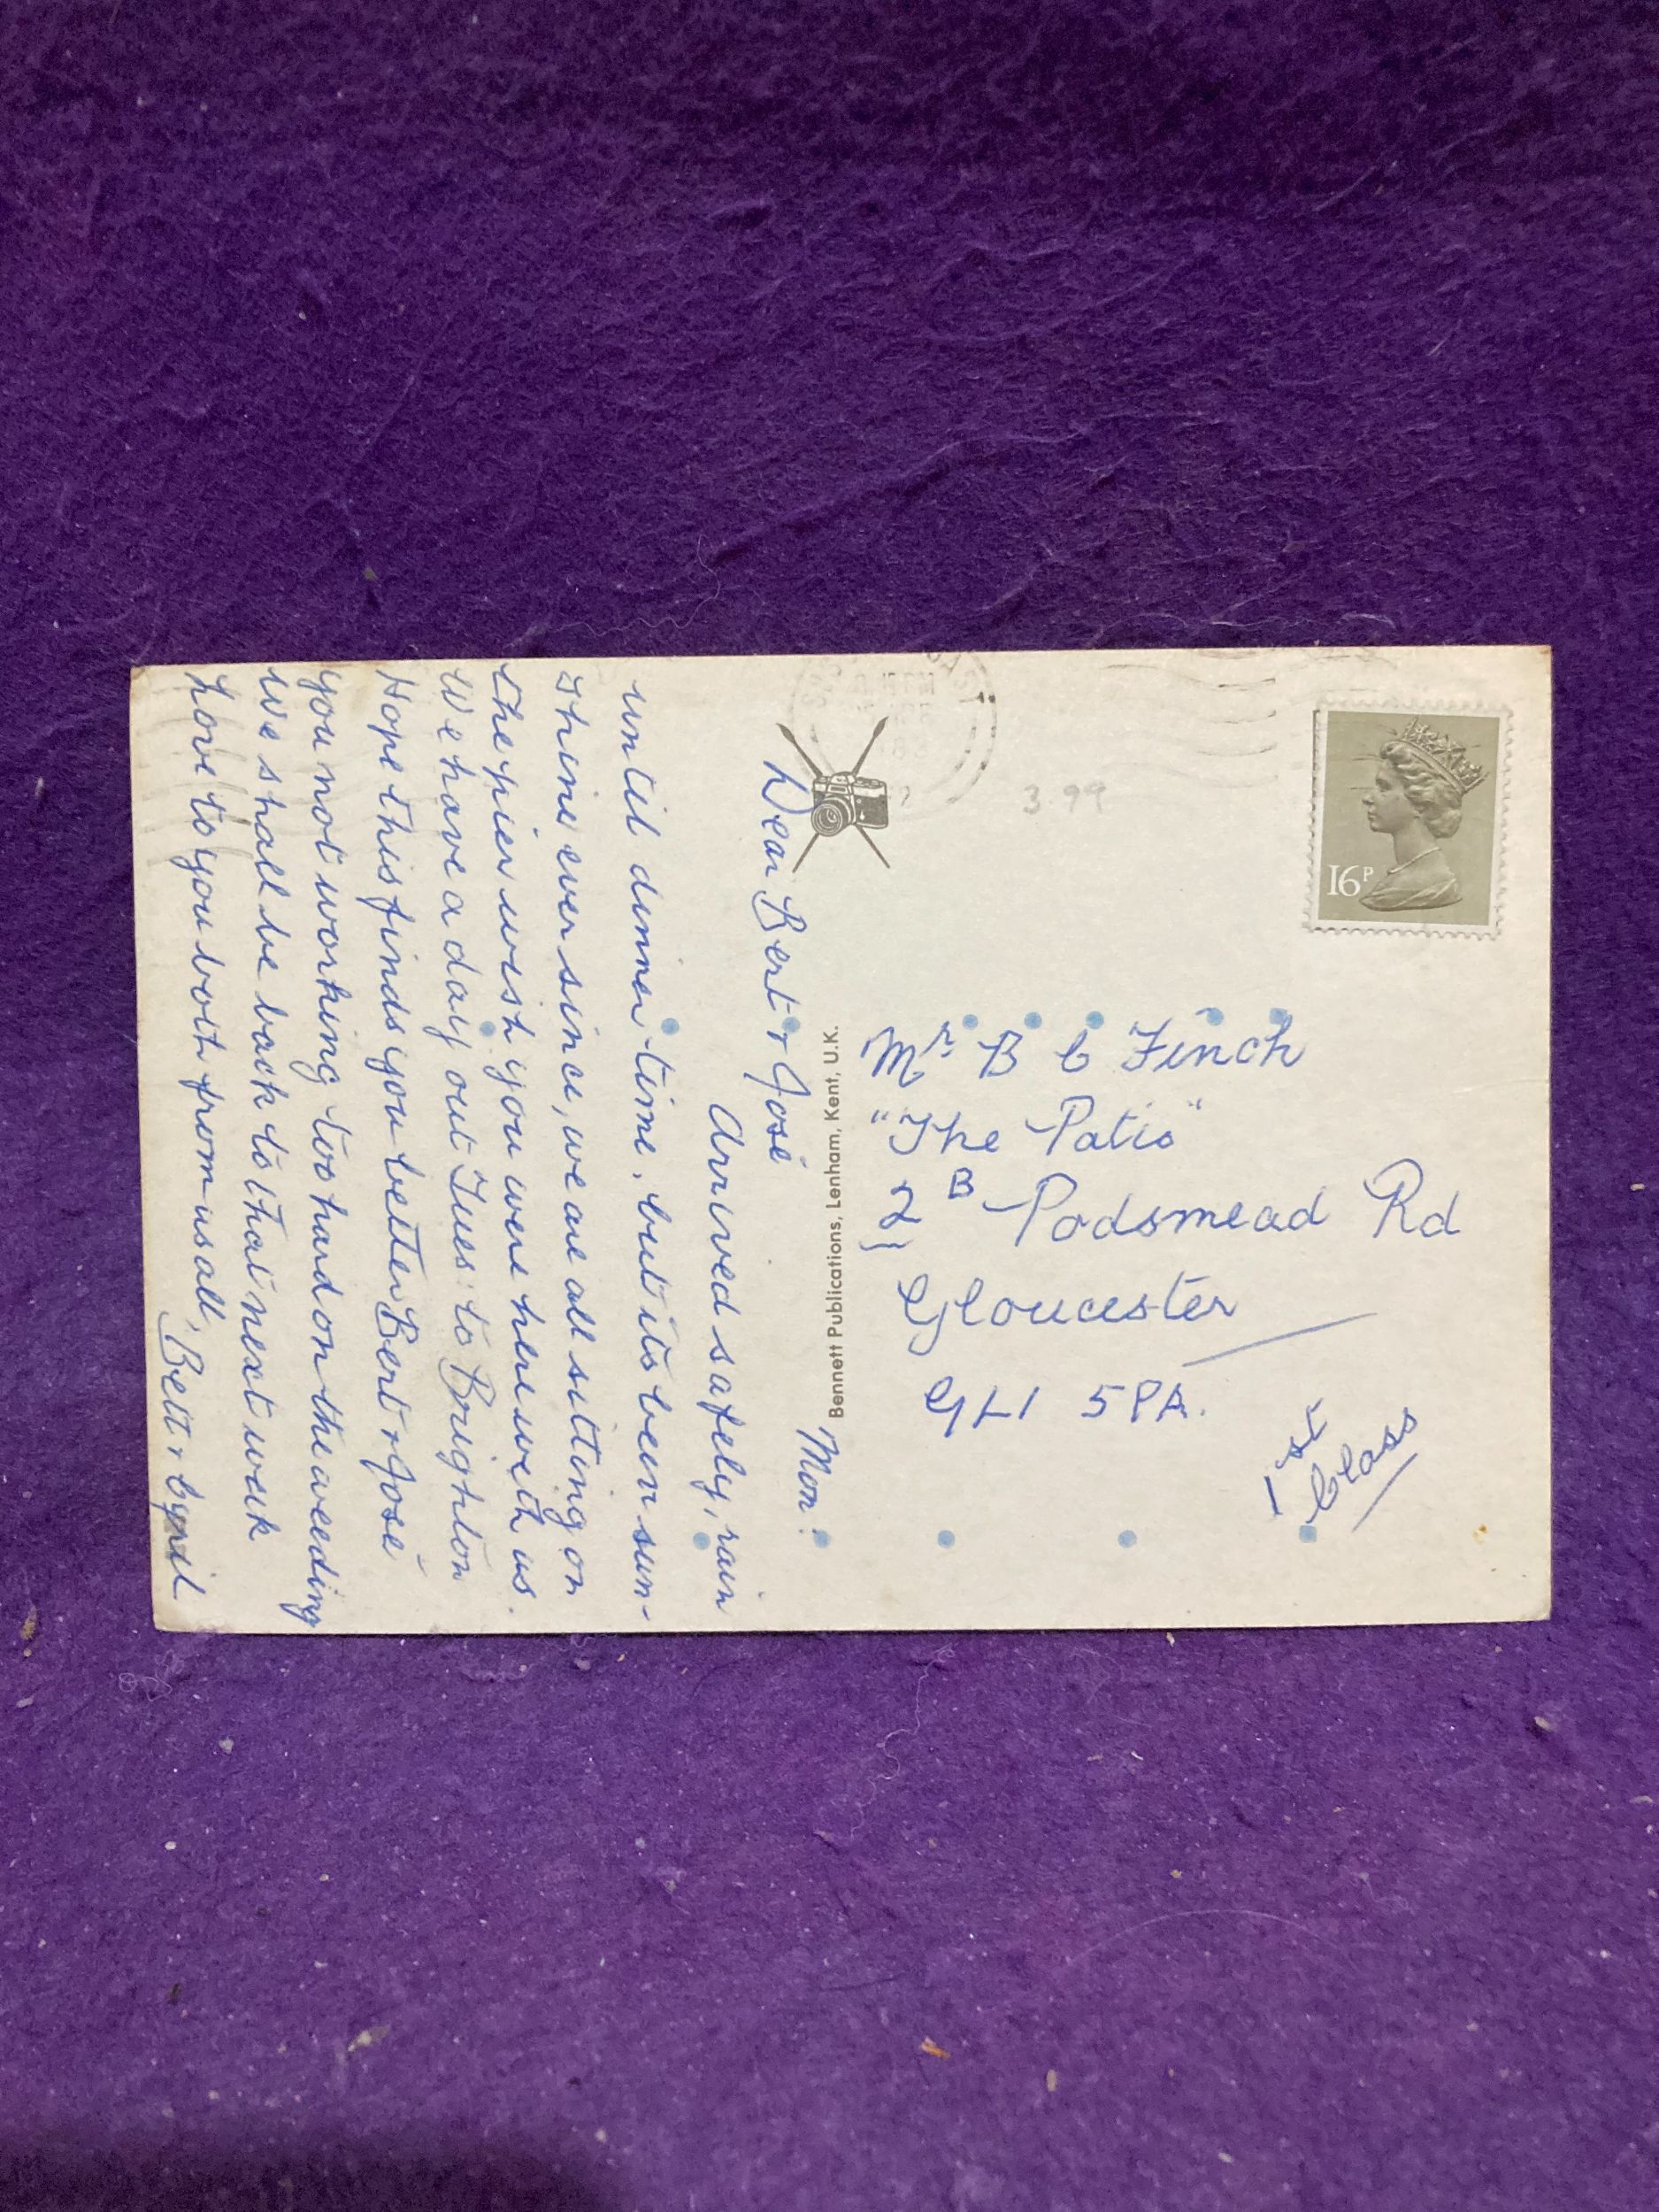 Mon:
Dear Bert + José
Arrived safely, rain
until dinner time, but its been sun-
shine ever since, we are all sitting on
the pier wish you were here with us.
We have a day out Tues: to Brighton
Hope this finds you better Bert + José
you not working too hard on the weeding
we shall be back to that next week
Love to you both from us all,
Bett + Cyril
Bennett Publications, Lenham, Kent, U.K.
3.99
16P
Mr B C Finch
"The Patio"
2B Podsmead Rd
Gloucester
GL1 5PA.
1st
Class